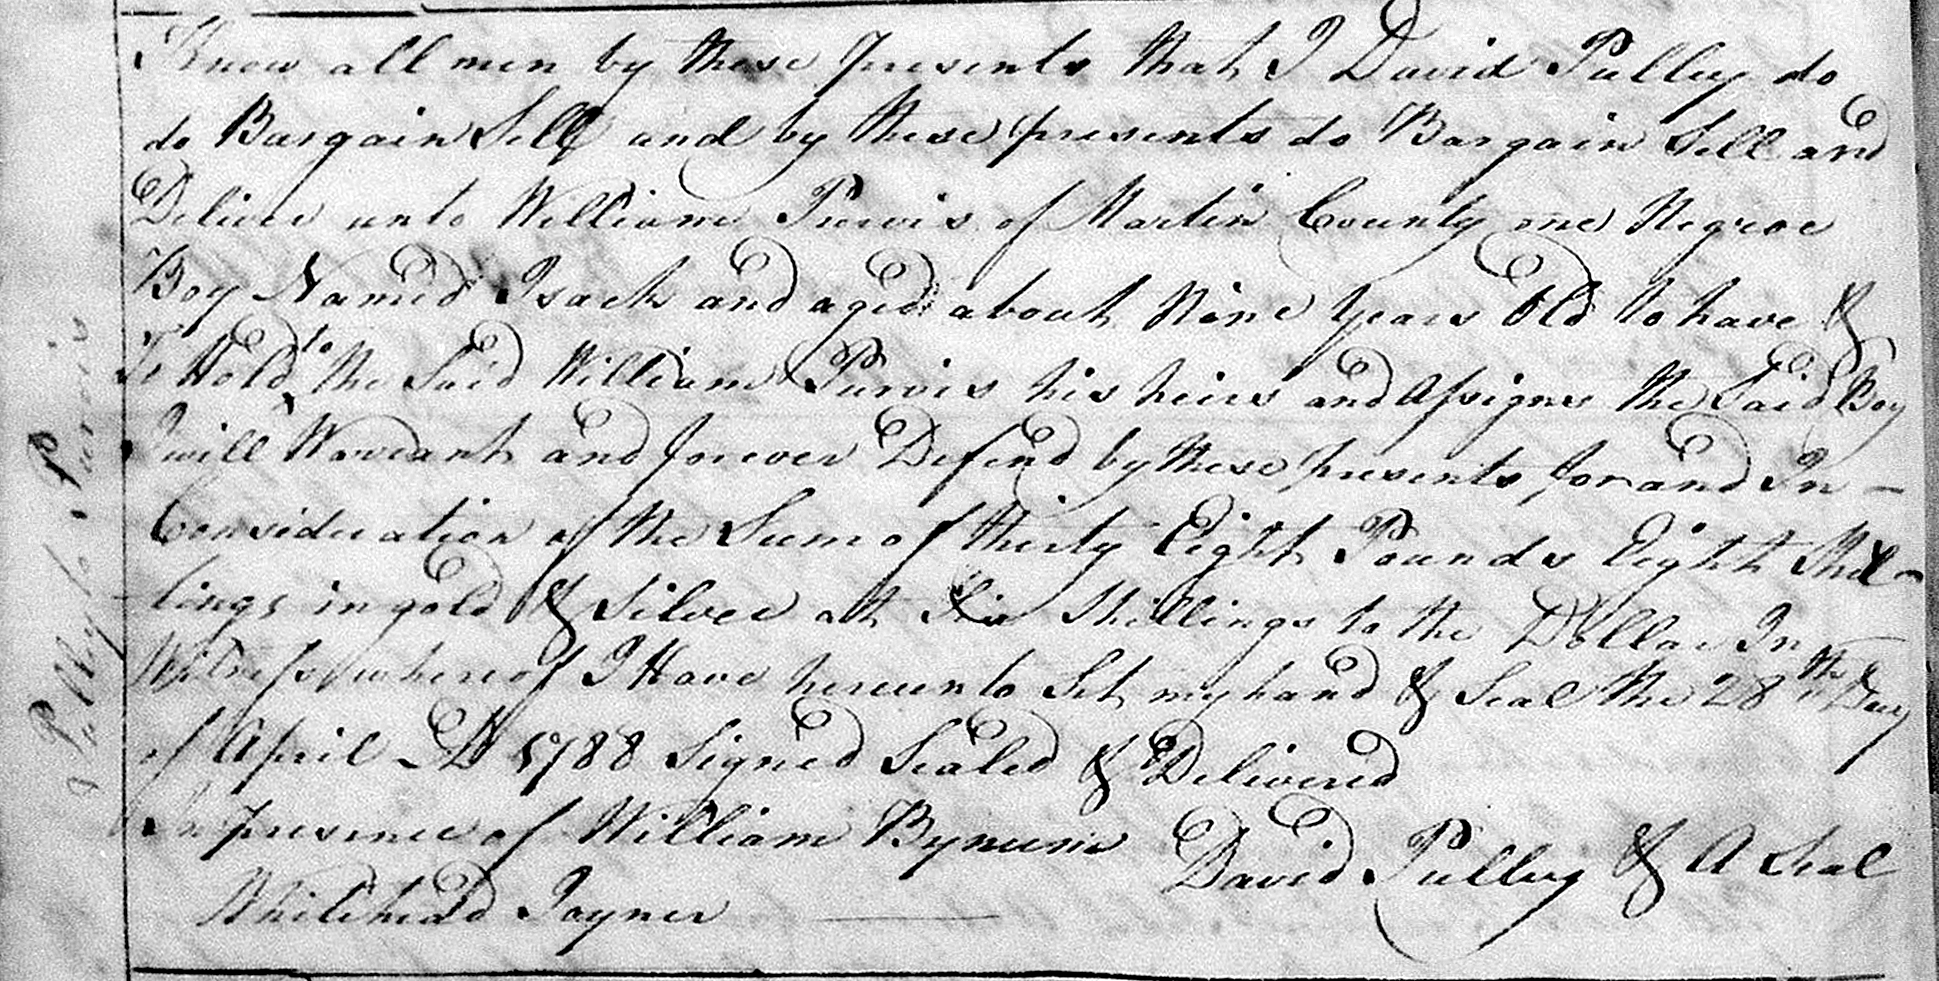 Know all men by these presents that I David Pulley do
do Bargain Sell and by these presents do Bargain Sell and
Deliver unto William Purvis of Martin County one Negroe
Boy Named Isack and aged about Nine years Old to have &
To Hold to the Said William Purvis his heirs and Assigns the Said Boy
I will Warrant and forever Defend by these presents for and In
Consideration of the Sum of thirty Eight Pounds Eight Shil-
lings in gold & Silver at Six Shillings to the Dollar In
Witness whereof I Have hereunto Set my hand & Seal the 28th Day
of April AD 1788 Signed Sealed & Delivered
In presence of William Bynum David Pulley & A Seal
Whitehead Joyner
Pulley to Purvis